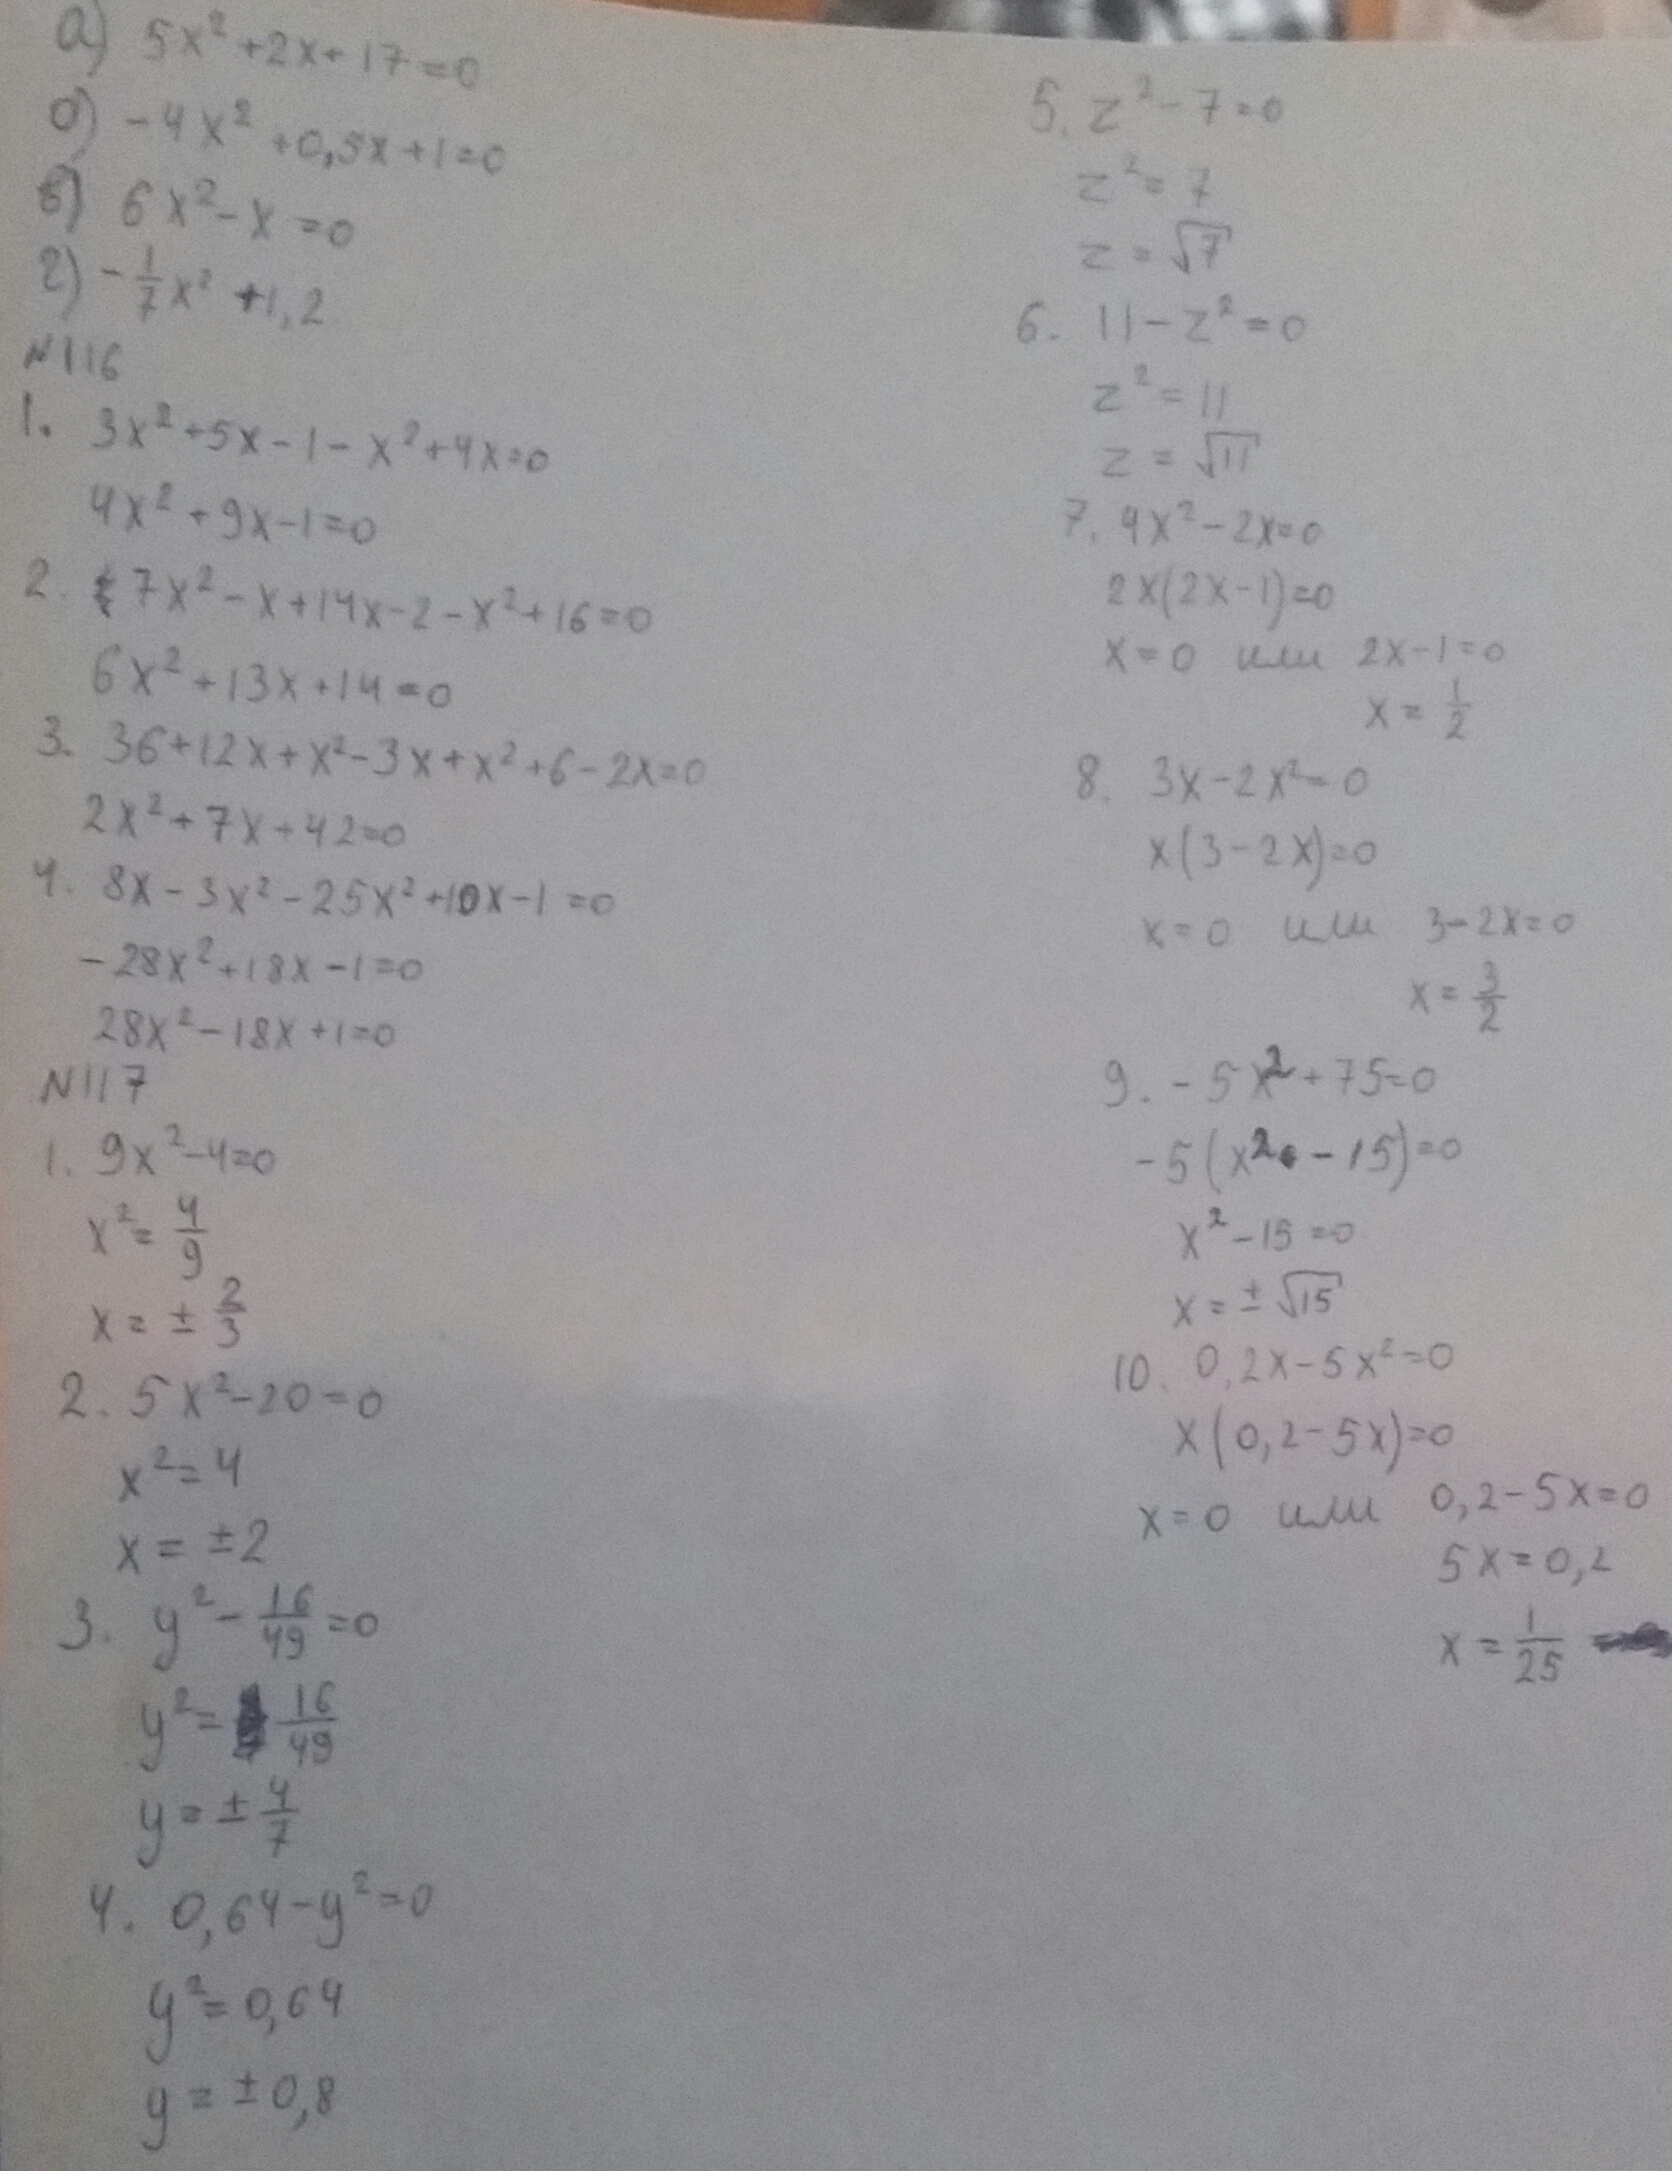 а) 5x²+2x+17=0
б) -4x²+0,5x+1=0
в) 6x²-x=0
г) -1/7x²+1,2
N116
1. 3x²+5x-1-x²+4x=0
4x²+9x-1=0
2. 7x²-x+14x-2-x²+16=0
6x²+13x+14=0
3. 36+12x+x²-3x+x²+6-2x=0
2x²+7x+42=0
4. 8x-3x²-25x²+10x-1=0
-28x²+18x-1=0
28x²-18x+1=0
N117
1. 9x²-4=0
x²=4/9
x=±2/3
2. 5x²-20=0
x²=4
x=±2
3. y²-16/49=0
y²=16/49
y=±4/7
4. 0,64-y²=0
y²=0,64
y=±0,8
5. z²-7=0
z²=7
z=√7
6. 11-z²=0
z²=11
z=√11
7. 4x²-2x=0
2x(2x-1)=0
x=0 или 2x-1=0
x=1/2
8. 3x-2x²=0
x(3-2x)=0
x=0 или 3-2x=0
x=3/2
9. -5x²+75=0
-5(x²-15)=0
x²-15=0
x=±√15
10. 0,2x-5x²=0
x(0,2-5x)=0
x=0 или 0,2-5x=0
5x=0,2
x=1/25